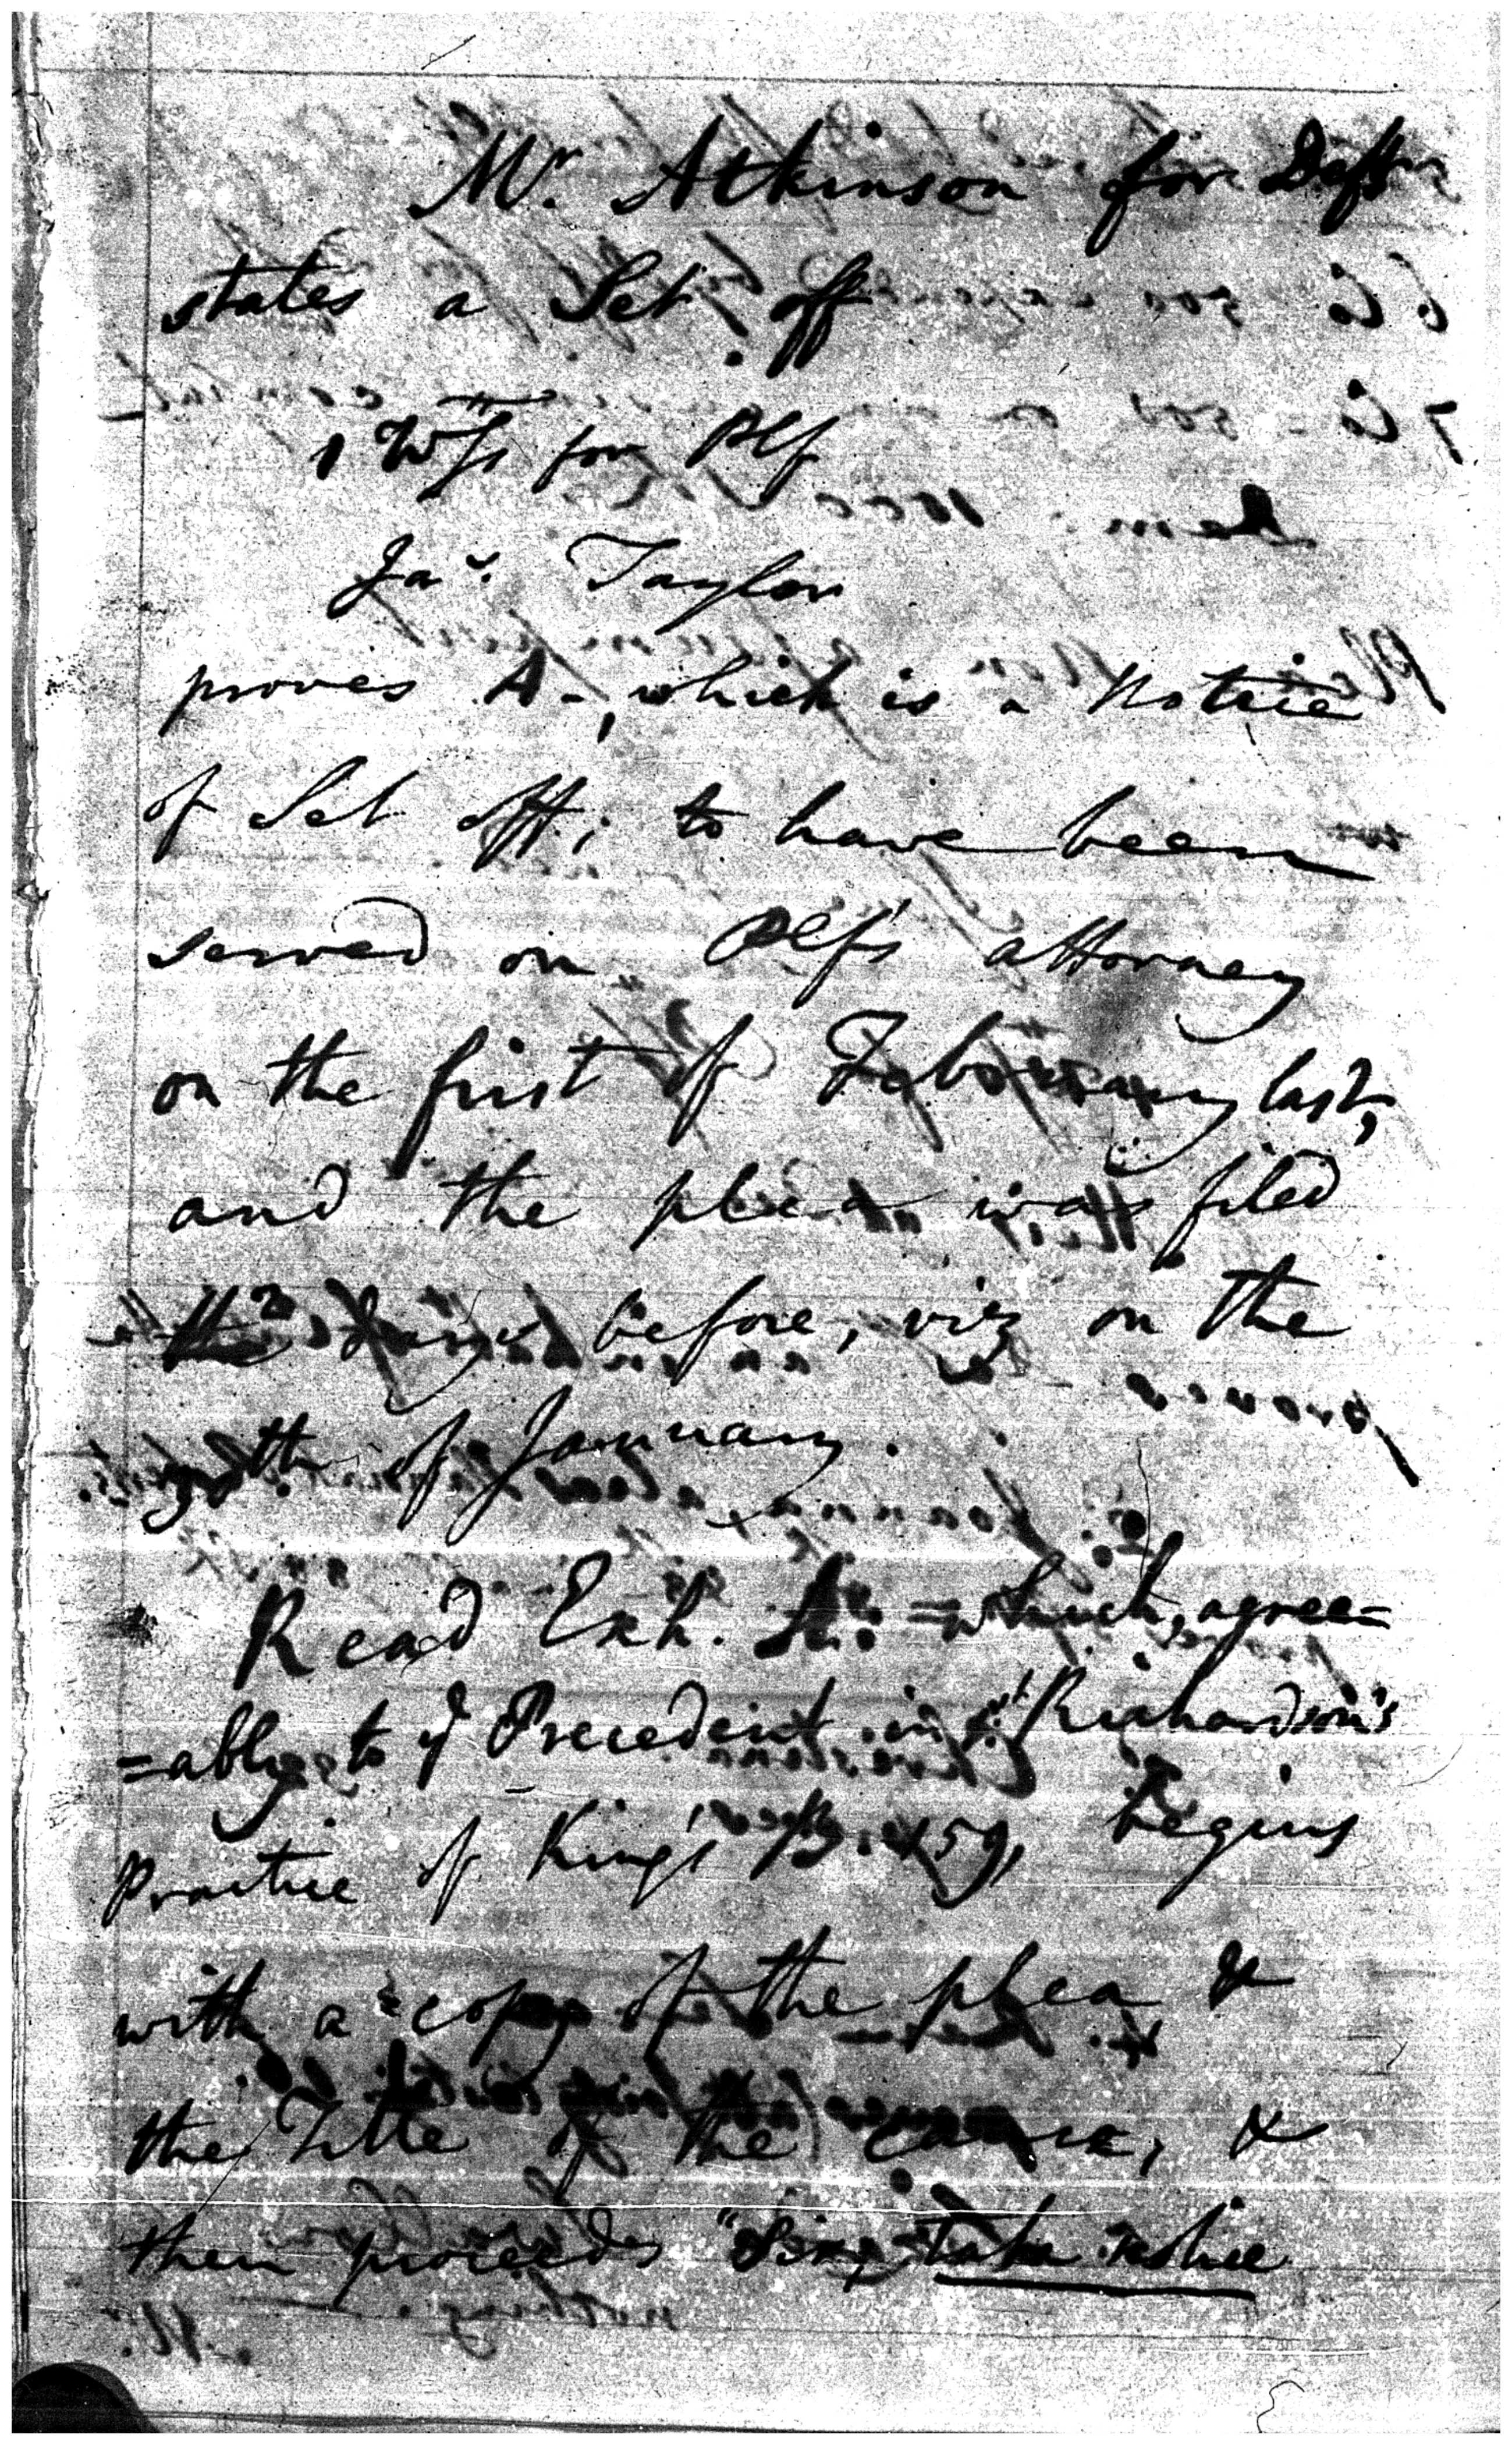 Mr. Atkinson for Deft
states a Set off
1 Wts for Plf
Jas. Taylor
proves A-, which is a Notice
of Set off; to have been
served on Plf's attorney
on the first of February last,
and the plea was filed
the day before, viz on the
31th of January.
Read Exh. A. = which, agree=
=ably to ye Precedent in 1st Richardson's
Practice of King's B. 459, begins
with a copy of the plea &
the Title of the cause, &
then proceeds "Sir, take notice